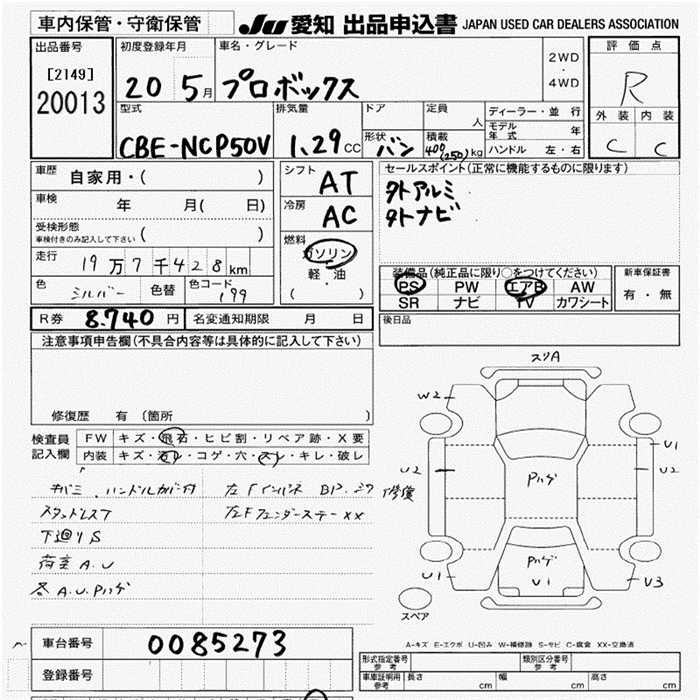 車内保管・守衛保管
JU 愛知 出品申込書 JAPAN USED CAR DEALERS ASSOCIATION
出品番号
[2149]
20013
初度登録年月
20 5月
車名・グレード
プロボックス
2WD
・
4WD
評価点
R
外装 内装
C C
型式
CBE-NCP50V
排気量
1.29cc
ドア
形状
バン
定員
人
積載
400(250)kg
ディーラー・並行
モデル年式 年
ハンドル 左・右
車歴
自家用・( )
車検 年 月( 日)
受検形態
車検付きのみ記入して下さい ( )
走行 19万7千428km
色 シルバー 色替 色コード 199
シフト AT
冷房 AC
燃料
ガソリン
軽・油
( )
セールスポイント(正常に機能するものに限ります)
外アルミ
外ナビ
装備品(純正品に限り○をつけてください)
PS PW エアB AW
SR ナビ TV カワシート
新車保証書
有・無
R券 8.740円 名変通知期限 月 日
後日品
注意事項申告欄(不具合内容等は具体的に記入して下さい)
修復歴 有 (箇所 )
検査員
記入欄
FW キズ・飛石・ヒビ割・リペア跡・X要
内装 キズ・汚レ・コゲ・穴・スレ・キレ・破レ
キバミ、ハンドルカバー付
スタッドレス7
下廻りS
荷室A.U
左Fインパネ BP.
修復
左Fフェンダーステー XX
A.U.Pハゲ
スリA
W2
U1
U2
U2
Pハゲ
Pハゲ
U1
U1
U3
スペア
A-キズ E-エクボ U-凹み W-補修跡 S-サビ C-腐食 XX-交換済
車台番号 0085273
登録番号
形式指定番号
参考
類別区分番号
参考
車庫証明用
参考
長さ cm 幅 cm 高さ cm